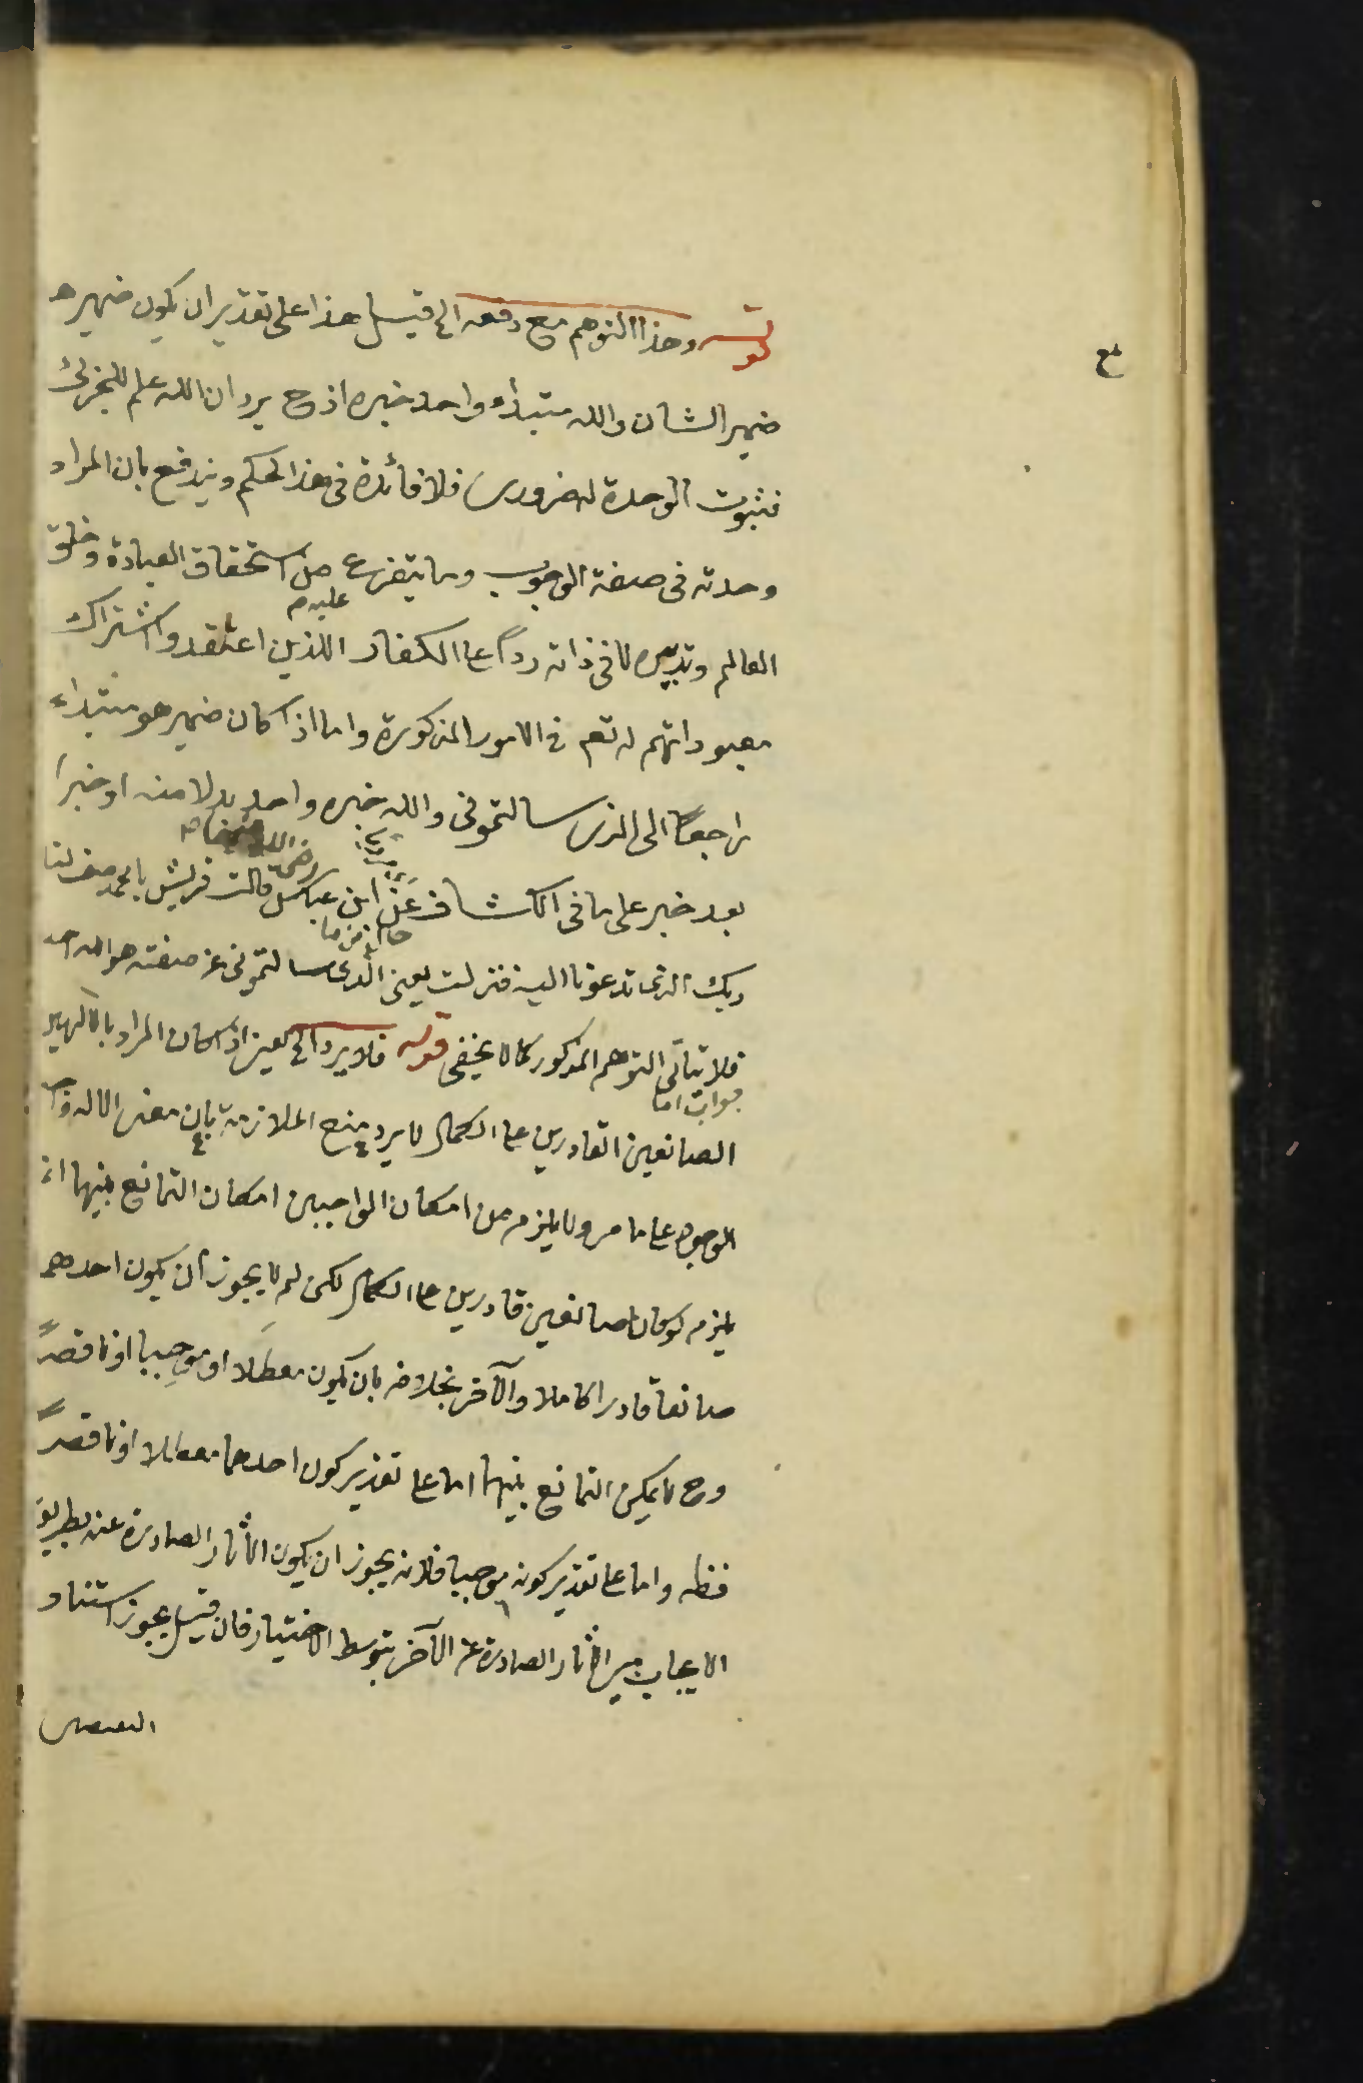 قوله وهذا التوهم مع دفعه الخ قيل هذا على تقدير ان يكون ضمير هو
ضمير الشان والله مبتداء واحد خبره اذ ح يرد ان الله علم للجزئى
فثبوت الوحدة له ضرورى فلا فائدة فى هذا الحكم ويندفع بان المراد
وحدته فى صفة الوجوب وما يتفرع عليه من استحقاق العبادة وخلق
العالم وتدبيره لا فى ذاته رداً على الكفار اللذين اعتقدوا اشتراك
معبوداتهم له تعم فى الامور المذكورة واما اذا كان ضمير هو مبتداء
راجعاً الى الذى سالتمونى والله خبره واحد بدلا منه او خبرا
بعد خبر على ما فى الكشاف عن ابن عباس رضى الله عنهما قالت قريش يا محمد صف لنا
ربك الذى تدعونا اليه فنزلت يعنى الذى سالتمونى عن صفته هو الله احد
فلا يتأتى التوهم المذكور كما لا يخفى قوله فلا يرد الخ يعنى اذا كان المراد بالآلهين
جواب اما
الصانعين القادرين على الكمال لا يرد منع الملازمة بان معنى الاله
الوجود على ما مر ولا يلزم من امكان الواجبين امكان التمانع بينهما
يلزم لو كانا صانعين قادرين على الكمال لكن لم لا يجوز ان يكون احدهما
صانعا قادرا كاملا والآخر بخلافه بان يكون معطلا او موجبا او ناقصاً
وح لا يمكن التمانع بينهما اما على تقدير كون احدهما معطلا او ناقصاً
فظه واما على تقدير كونه موجبا فلانه يجوز ان يكون الآثار الصادرة عنه بطريق
الايجاب غير الآثار الصادرة عن الآخر بتوسط الاختيار فان قيل يجوز استناد